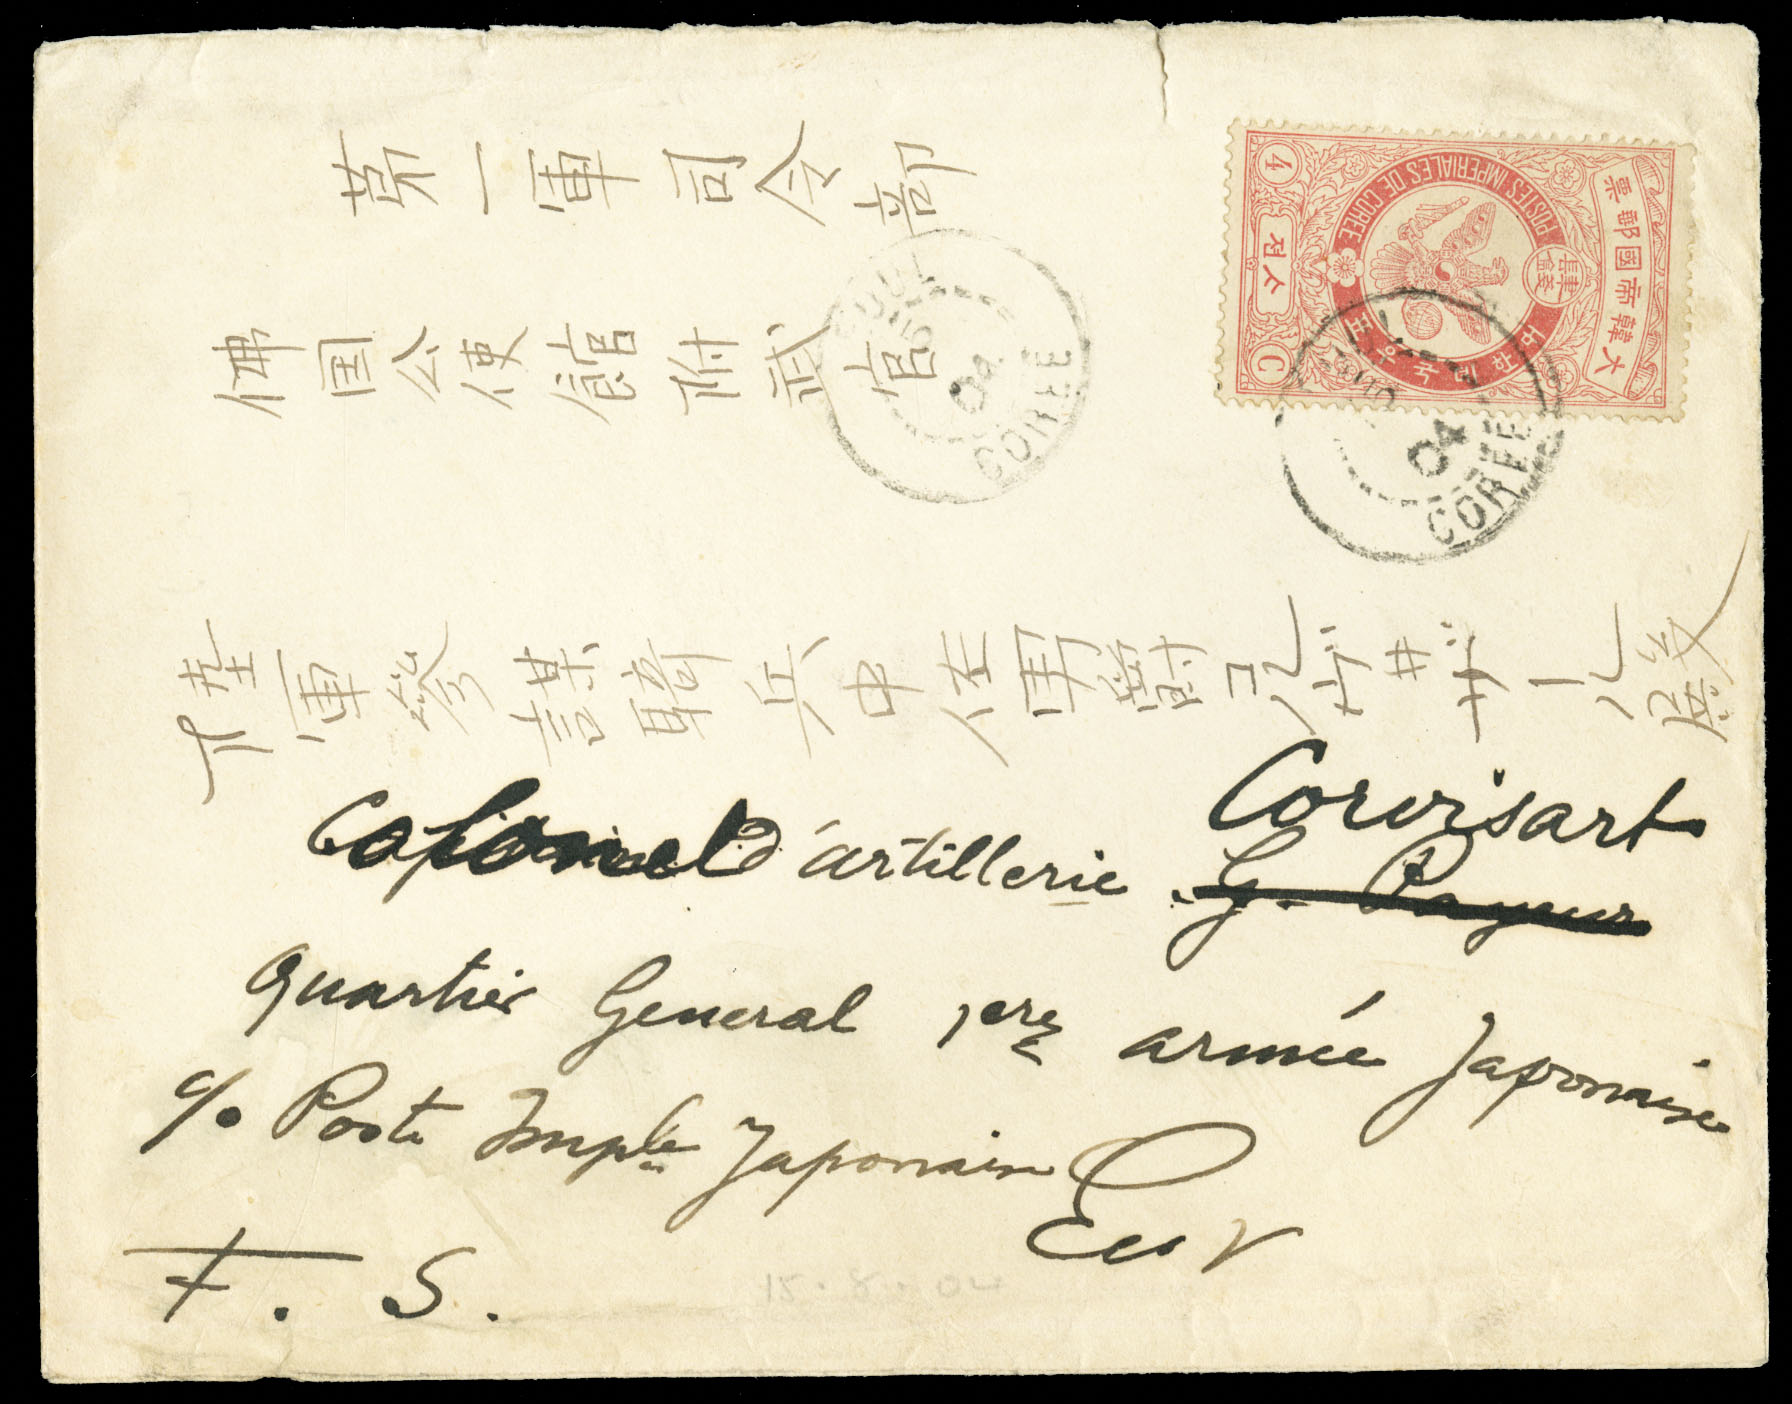 第一軍司令部
佛国公使館附武官
陸軍參謀騎兵中佐男爵コルヴ井ザール殿
大韓帝國郵票
肆錢
POSTES IMPERIALES DE COREE
4
C
SEOUL COREE
04
COREE
04
Corvisart
Colonel d'artillerie G. Payeur
Quartier General 1ere armée Japonaise
c/o Poste Imple Japonaise
F. S.
15.8.04